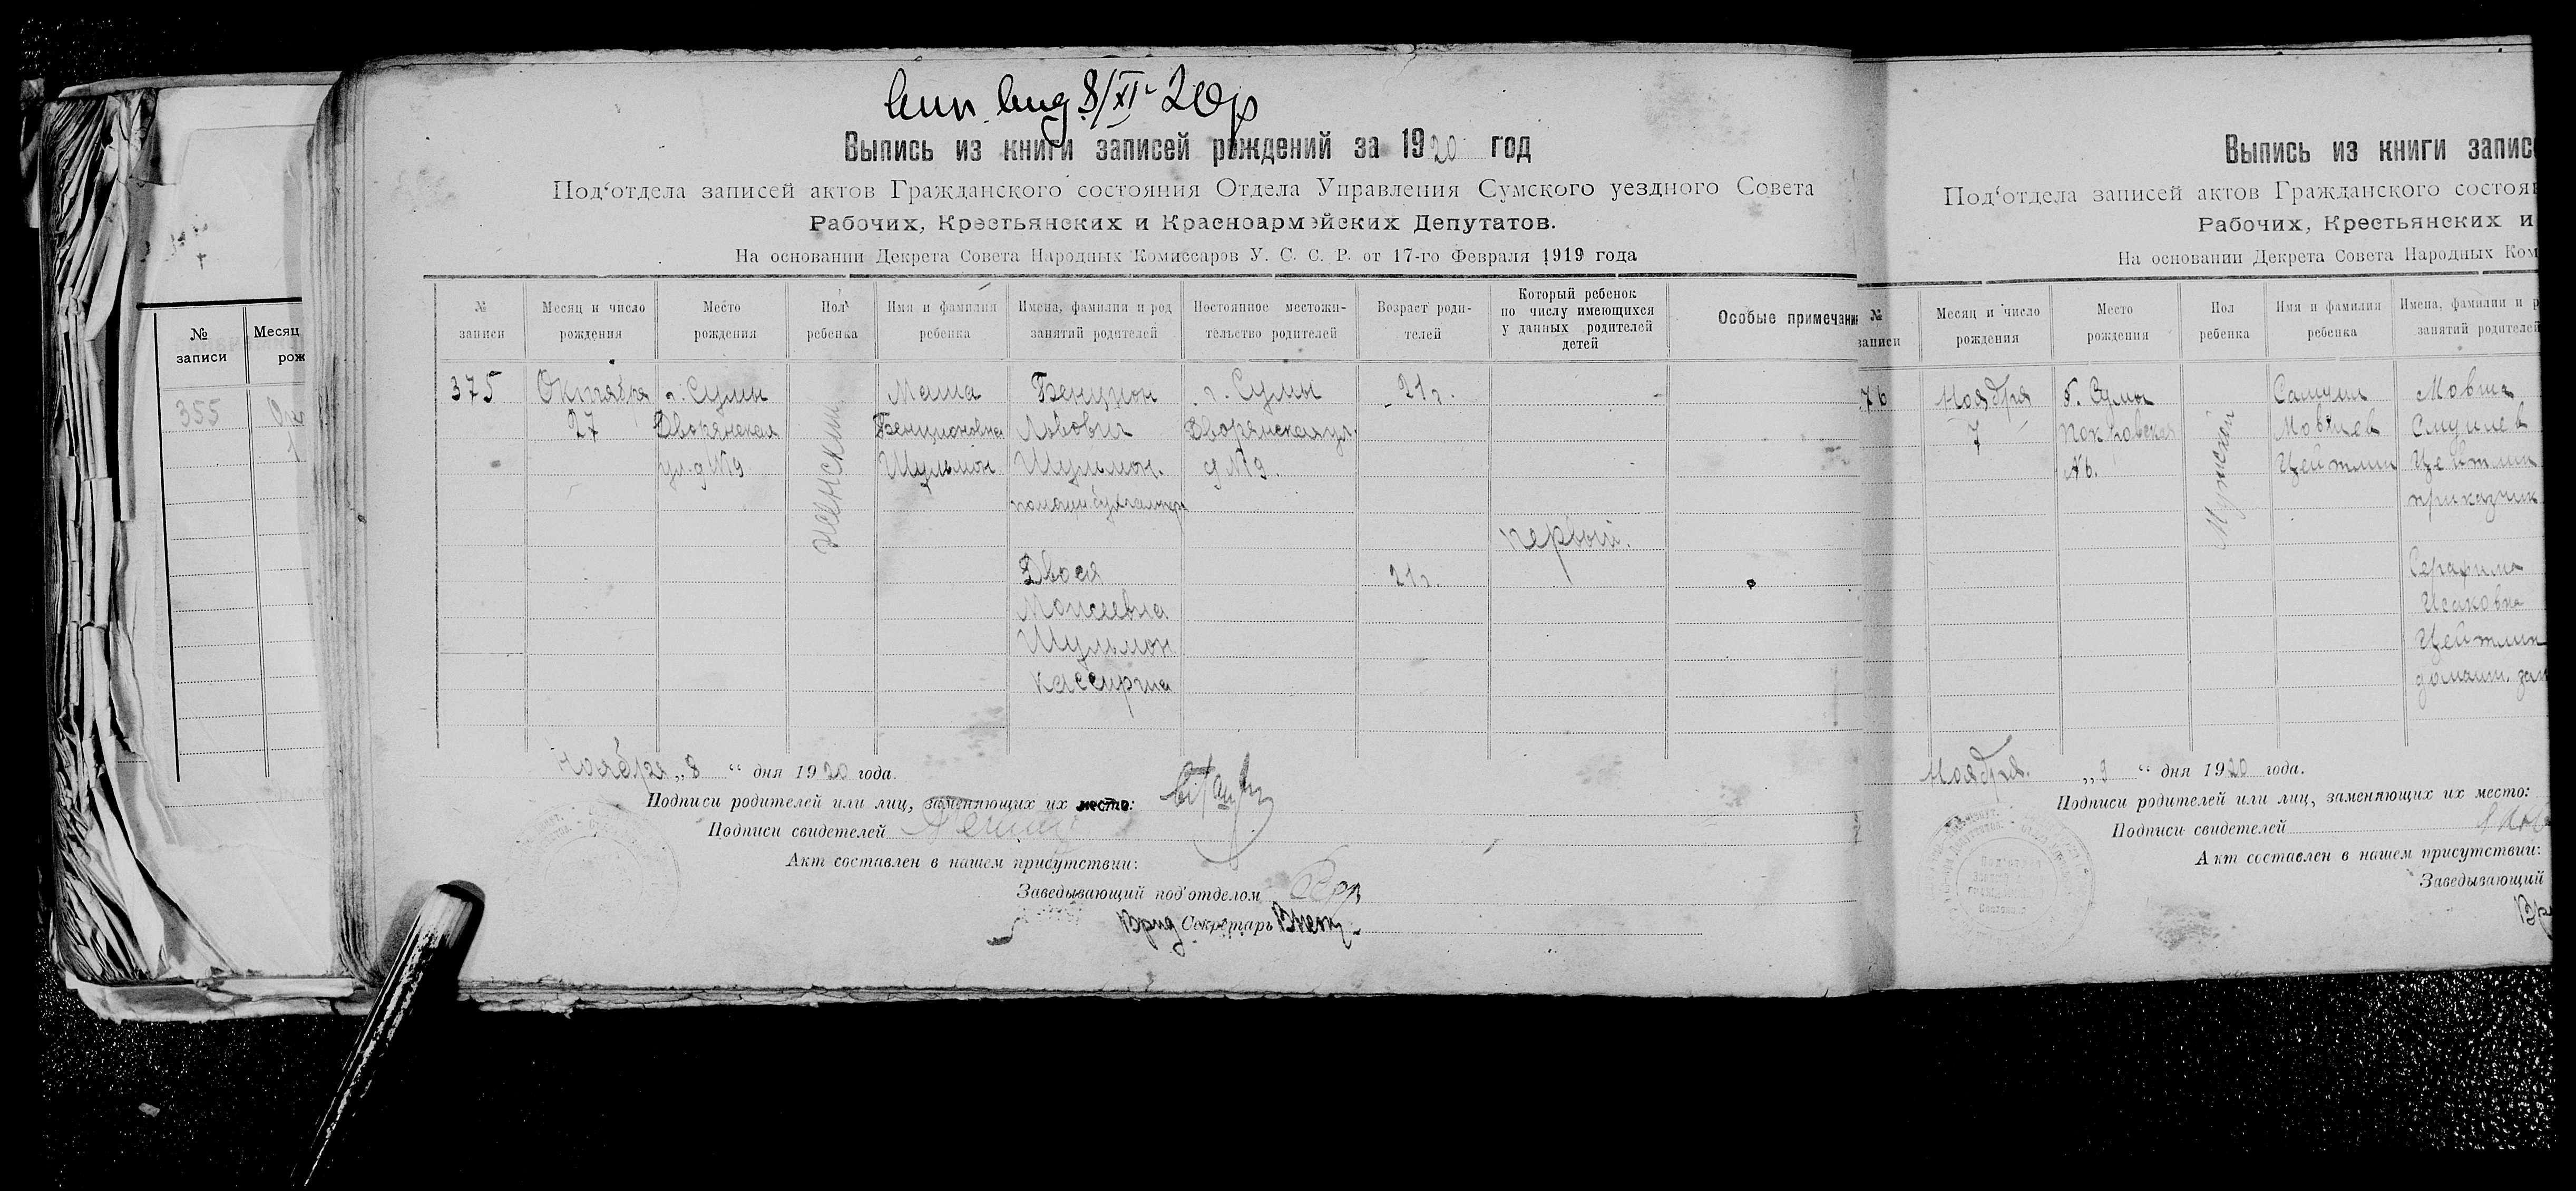 8/XI 20 г
Выпись из книги записей рождений за 1920 год
Под'отдела записей актов Гражданского состояния Отдела Управления Сумского уездного Совета
Рабочих, Крестьянских и Красноармейских Депутатов.
На основании Декрета Совета Народных Комиссаров У. С. С. Р. от 17-го Февраля 1919 года
№ записи
Месяц и число рождения
Место рождения
Пол ребенка
Имя и фамилия ребенка
Имена, фамилии и род занятий родителей
Постоянное местожительство родителей
Возраст родителей
Который ребенок по числу имеющихся у данных родителей детей
Особые примечани
375
Октября
27
г. Сумы
Дворянская
ул. д №9
женский
Маша
Бенционовна
Шульман
Бенцион
Львович
Шульман
помощн. бухгалтера
Двося
Моисеевна
Шульман
кассирша
г. Сумы
Дворянская ул.
д №9.
21 г.
21 г.
первый.
Ноября „8 “ дня 1920 года.
Подписи родителей или лиц, заменяющих их место:
Подписи свидетелей
Акт составлен в нашем присутствии:
Заведывающий под'отделом
Врид Секретарь
№ записи
Месяц рож
355
Ок
1
Выпись из книги записе
Под'отдела записей актов Гражданского состоян
Рабочих, Крестьянских и
На основании Декрета Совета Народных Ком
№ записи
Месяц и число рождения
Место рождения
Пол ребенка
Имя и фамилия ребенка
Имена, фамилии и р
занятий родителей
76
Ноября
7
г. Сумы
Покровская
№6.
Мужской
Самуил
Мовшев
Цейтлин
Мовша
Смуилев
Цейтлин
приказчик
Серафима
Исаковна
Цейтлин
домашн. зан
Ноября. „9 “ дня 1920 года.
Подписи родителей или лиц, заменяющих их место:
Подписи свидетелей
Акт составлен в нашем присутствии:
Заведывающий
Вр